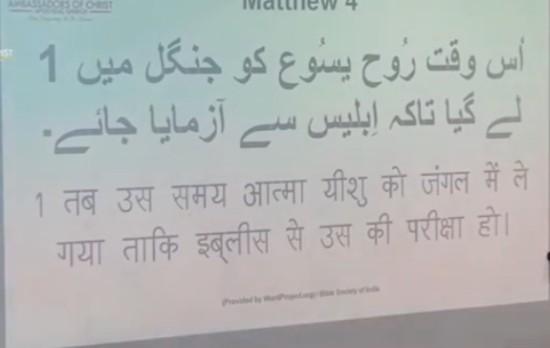 AMBASSADORS OF CHRIST
Matthew 4
1 اُس وقت رُوح یسُوع کو جنگل میں
لے گیا تاکہ اِبلیس سے آزمایا جائے۔
1 तब उस समय आत्मा यीशु को जंगल में ले
गया ताकि इब्लीस से उस की परीक्षा हो।
(Provided by WordProject.org/ Bible Society of India